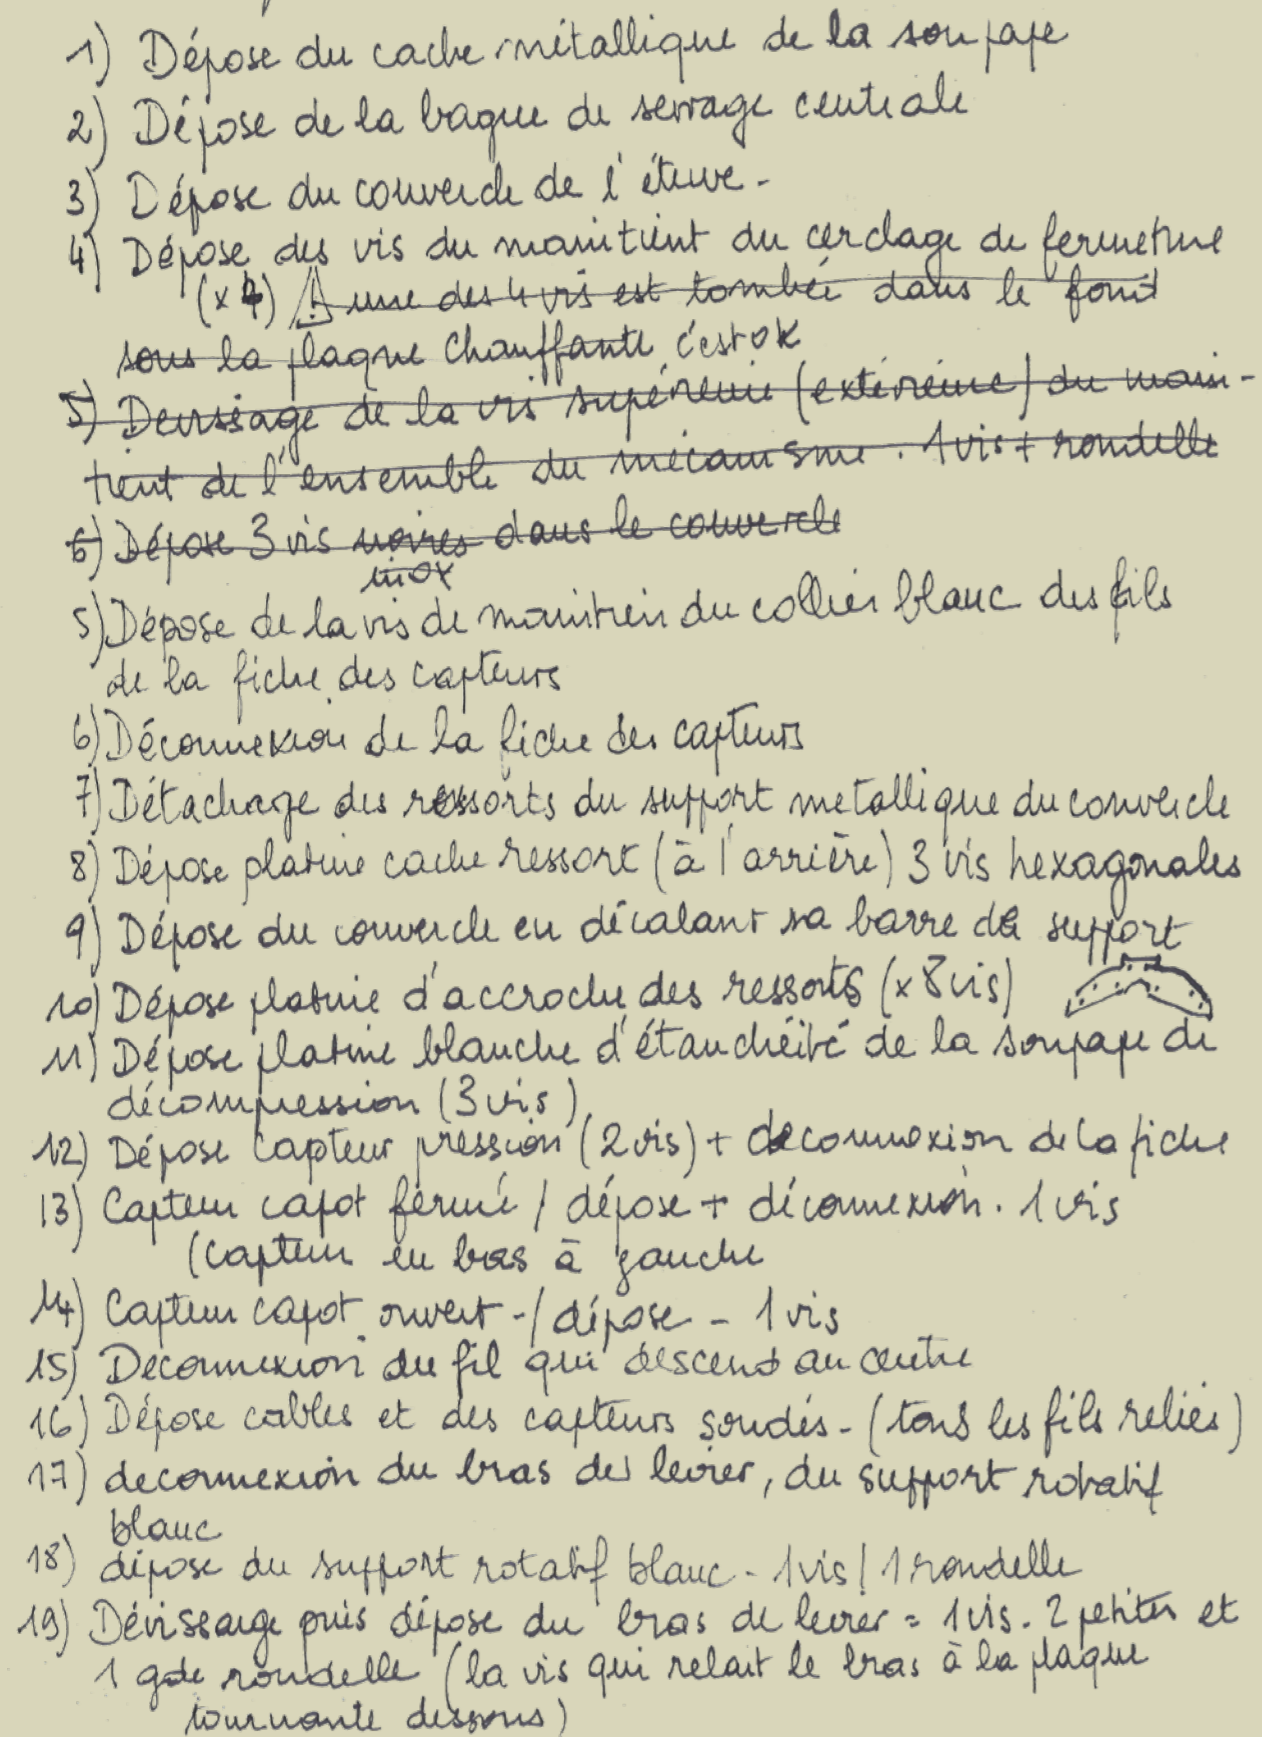 1) Dépose du cache métallique de la soupape
2) Dépose de la bague de serrage centrale
3) Dépose du couvercle de l'étuve.
4) Dépose des vis du maintient du cerclage de fermeture
(x4) ⚠ une des 4 vis est tombée dans le fond
sous la plaque chauffante c'est OK
5) Devissage de la vis supérieure (extérieure) du main-
tient de l'ensemble du mécanisme. 1 vis + rondelle
6) Dépose 3 vis noires dans le couvercle
inox
5) Dépose de la vis de maintien du collier blanc des fils
de la fiche des capteurs
6) Déconnexion de la fiche des capteurs
7) Détachage des ressorts du support metallique du couvercle
8) Dépose platine cache ressort (à l'arrière) 3 vis hexagonales
9) Dépose du couvercle en décalant sa barre de support
10) Dépose platine d'accroche des ressorts (x8 vis)
11) Dépose platine blanche d'étanchéité de la soupape de
décompression (3 vis)
12) Dépose capteur pression (2 vis) + deconnexion de la fiche
13) Capteur capot fermé / dépose + déconnexion. 1 vis
(capteur en bas à gauche
14) Capteur capot ouvert - / dépose - 1 vis
15) Deconnexion du fil qui descend au centre
16) Dépose cables et des capteurs soudés - (tous les fils reliés)
17) deconnexion du bras de levier, du support rotatif
blanc
18) dépose du support rotatif blanc - 1 vis / 1 rondelle
19) Dévissage puis dépose du bras de levier = 1 vis. 2 petites et
1 gde rondelle (la vis qui relait le bras à la plaque
tournante dessous)